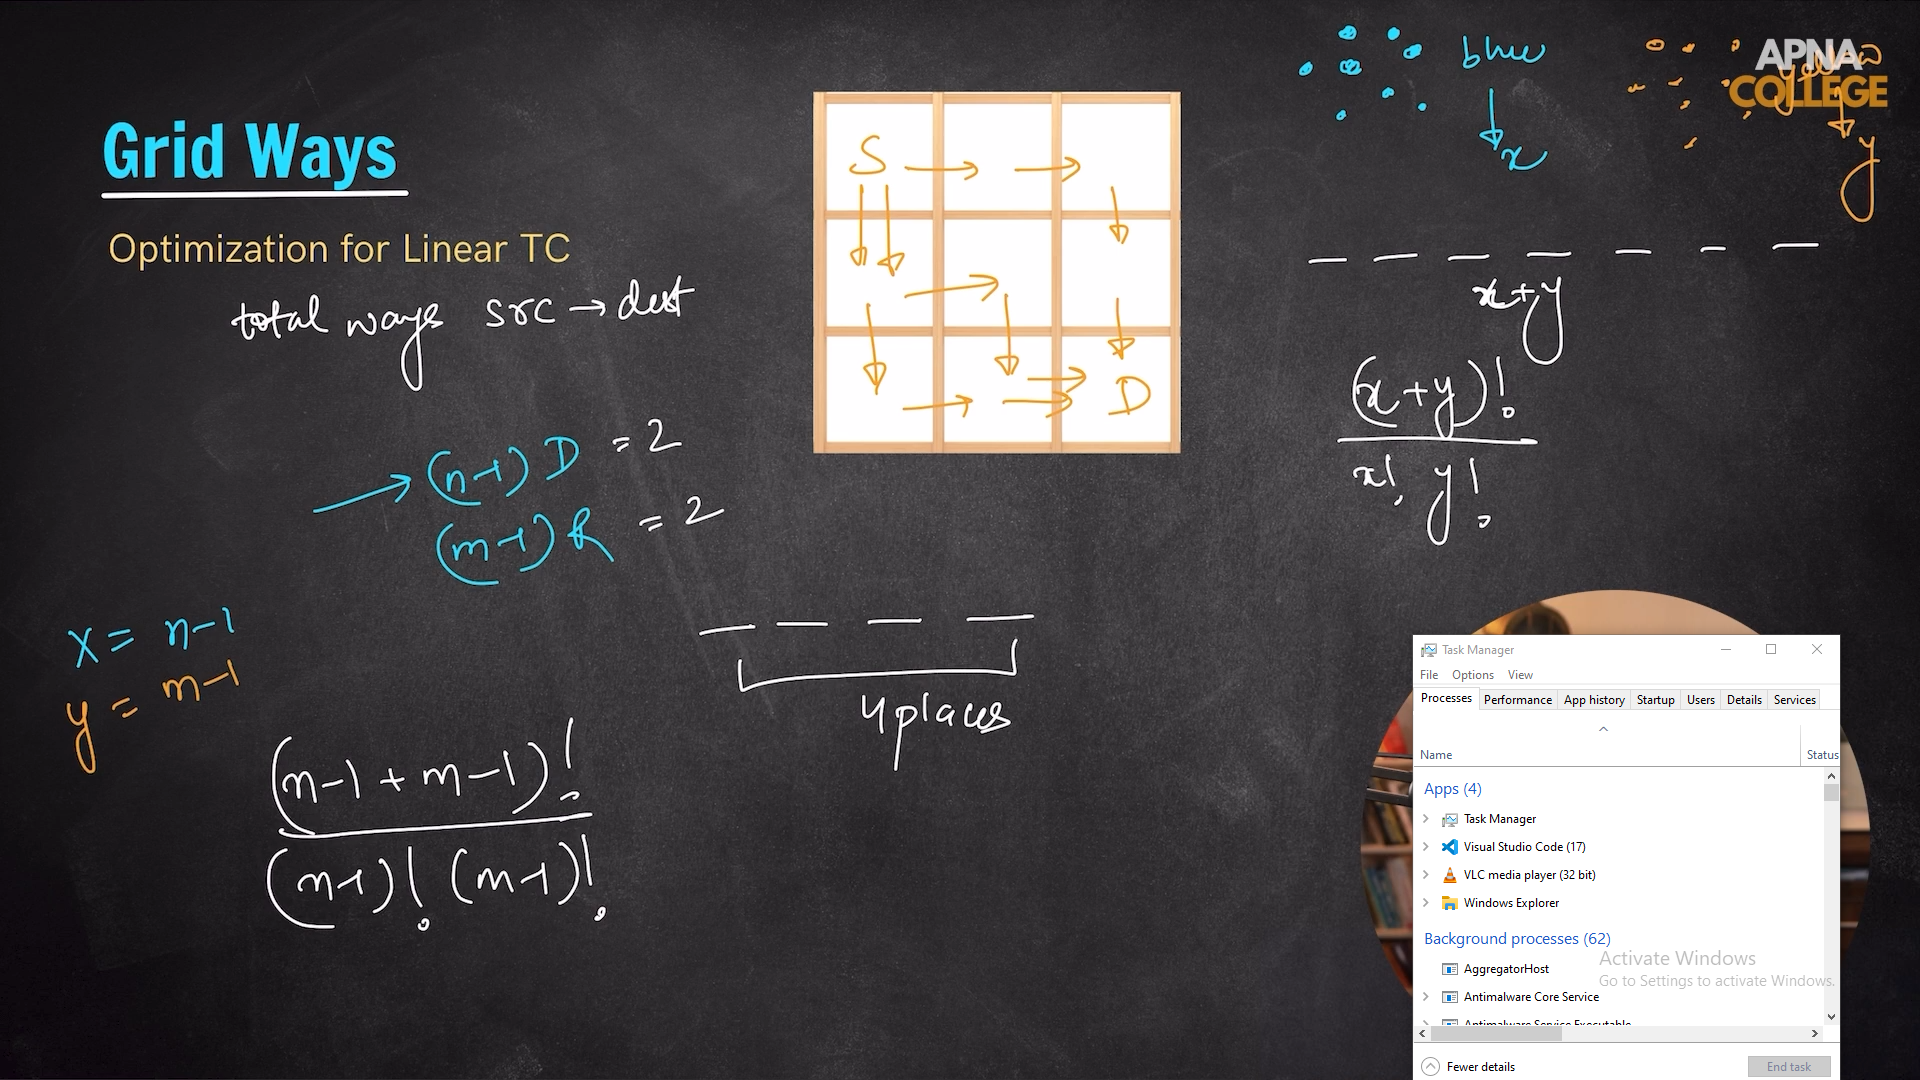 Grid Ways
Optimization for Linear TC
total ways src → dest
→ (n-1) D = 2
(m-1) R = 2
x = n-1
y = m-1
(n-1 + m-1)!
(n-1)! (m-1)!
S
D
4 places
blue
x
yellow
y
APNA
COLLEGE
x+y
(x+y)!
x! y!
Task Manager
File Options View
Processes Performance App history Startup Users Details Services
Name Status
Apps (4)
Task Manager
Visual Studio Code (17)
VLC media player (32 bit)
Windows Explorer
Background processes (62)
AggregatorHost
Antimalware Core Service
Antimalware Service Executable
Activate Windows
Go to Settings to activate Windows.
Fewer details End task